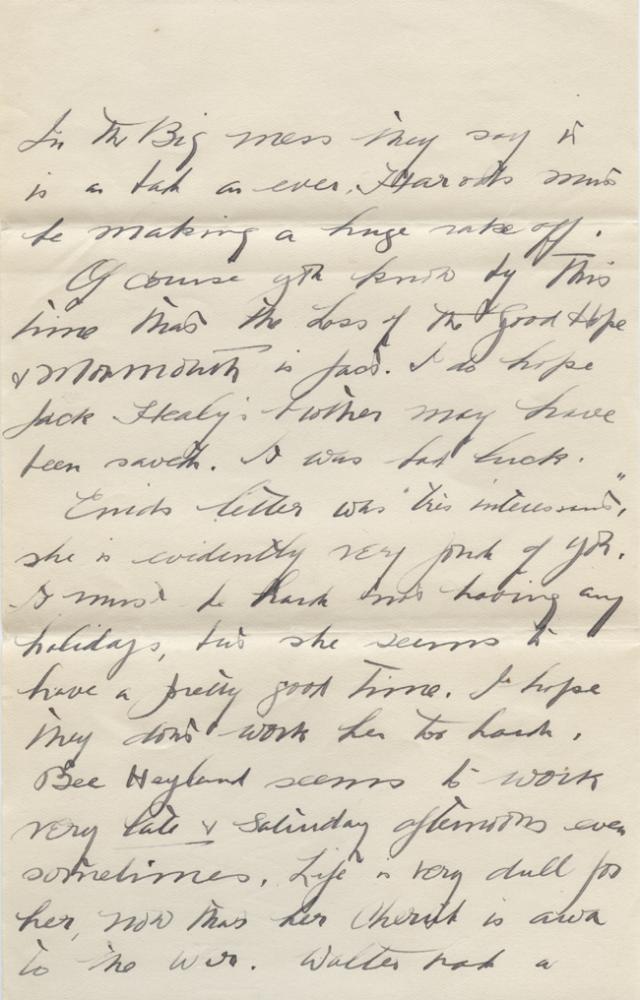 In the Big mess they say it
is as bad as ever. Harrods must
be making a huge rake off.
Of course you know by this
time that the Loss of the Good Hope
& Monmouth is fact. I do hope
Jack Healy's brother may have
been saved. It was bad luck.
Enids letter was "très interessant",
she is evidently very fond of you.
It must be hard not having any
holidays, but she seems to
have a pretty good time. I hope
they dont work her too hard.
Bee Heyland seems to work
very late & Saturday afternoons even
sometimes. Life is very dull for
her, now that her is away
to the War. Walter had a